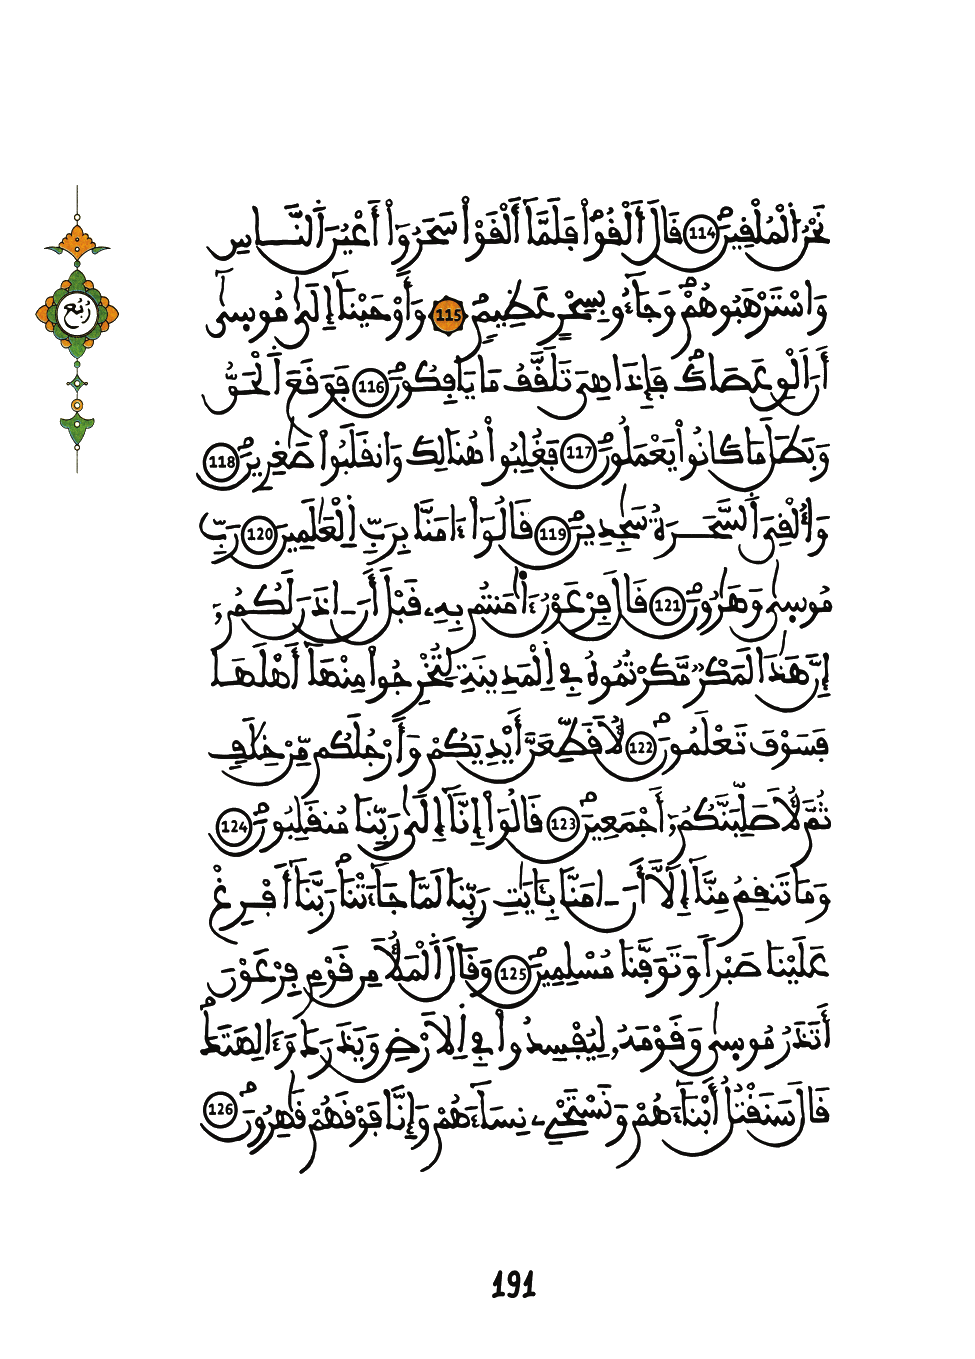 نَحْنُ اُ۬لْمُلْقِينَۖ 114 قَالَ أَلْقُواْۖ فَلَمَّآ أَلْقَوْاْ سَحَرُوٓاْ أَعْيُنَ اَ۬لنَّاسِ
وَاسْتَرْهَبُوهُمْۖ وَجَآءُو بِسِحْرٍ عَظِيمٖۖ 115 وَأَوْحَيْنَآ إِلَىٰ مُوسِىٰٓ
أَنَ اَلْقِ عَصَاكَۖ فَإِذَا هِيَ تَلَقَّفُ مَا يَافِكُونَۖ 116 فَوَقَعَ اَ۬لْحَقُّ
وَبَطَلَ مَا كَانُواْ يَعْمَلُونَۖ 117 فَغُلِبُواْ هُنَالِكَ وَانقَلَبُواْ صَٰغِرِينَۖ 118
وَأُلْقِيَ اَ۬لسَّحَرَةُ سَٰجِدِينَۖ 119 قَالُوٓاْ ءَامَنَّا بِرَبِّ اِ۬لْعَٰلَمِينَ 120 رَبِّ
مُوسِىٰ وَهَٰرُونَۖ 121 قَالَ فِرْعَوْنُ ءَا۬مَنتُم بِهِۦ قَبْلَ أَنَ اٰذَنَ لَكُمُۥٓ
إِنَّ هَٰذَا لَمَكْرٞ مَّكَرْتُمُوهُ فِي اِ۬لْمَدِينَةِ لِتُخْرِجُواْ مِنْهَآ أَهْلَهَا
فَسَوْفَ تَعْلَمُونَۖ 122 لَأُقَطِّعَنَّ أَيْدِيَكُمْ وَأَرْجُلَكُم مِّنْ خِلَٰفٖ
ثُمَّ لَأُصَلِّبَنَّكُمُۥٓ أَجْمَعِينَۖ 123 قَالُوٓاْ إِنَّآ إِلَىٰ رَبِّنَا مُنقَلِبُونَۖ 124
وَمَا تَنقِمُ مِنَّآ إِلَّآ أَنَ اٰمَنَّا بِـَٔايَٰتِ رَبِّنَا لَمَّا جَآءَتْنَاۖ رَبَّنَآ أَفْرِغْ
عَلَيْنَا صَبْراٗ وَتَوَفَّنَا مُسْلِمِينَۖ 125 وَقَالَ اَ۬لْمَلَأُ مِن قَوْمِ فِرْعَوْنَ
أَتَذَرُ مُوسِىٰ وَقَوْمَهُۥ لِيُفْسِدُواْ فِي اِ۬لْأَرْضِ وَيَذَرَكَ وَءَالِهَتَكَۖ
قَالَ سَنَقْتُلُ أَبْنَآءَهُمْ وَنَسْتَحْيِۦ نِسَآءَهُمْ وَإِنَّا فَوْقَهُمْ قَٰهِرُونَۖ 126
رُبُع
191